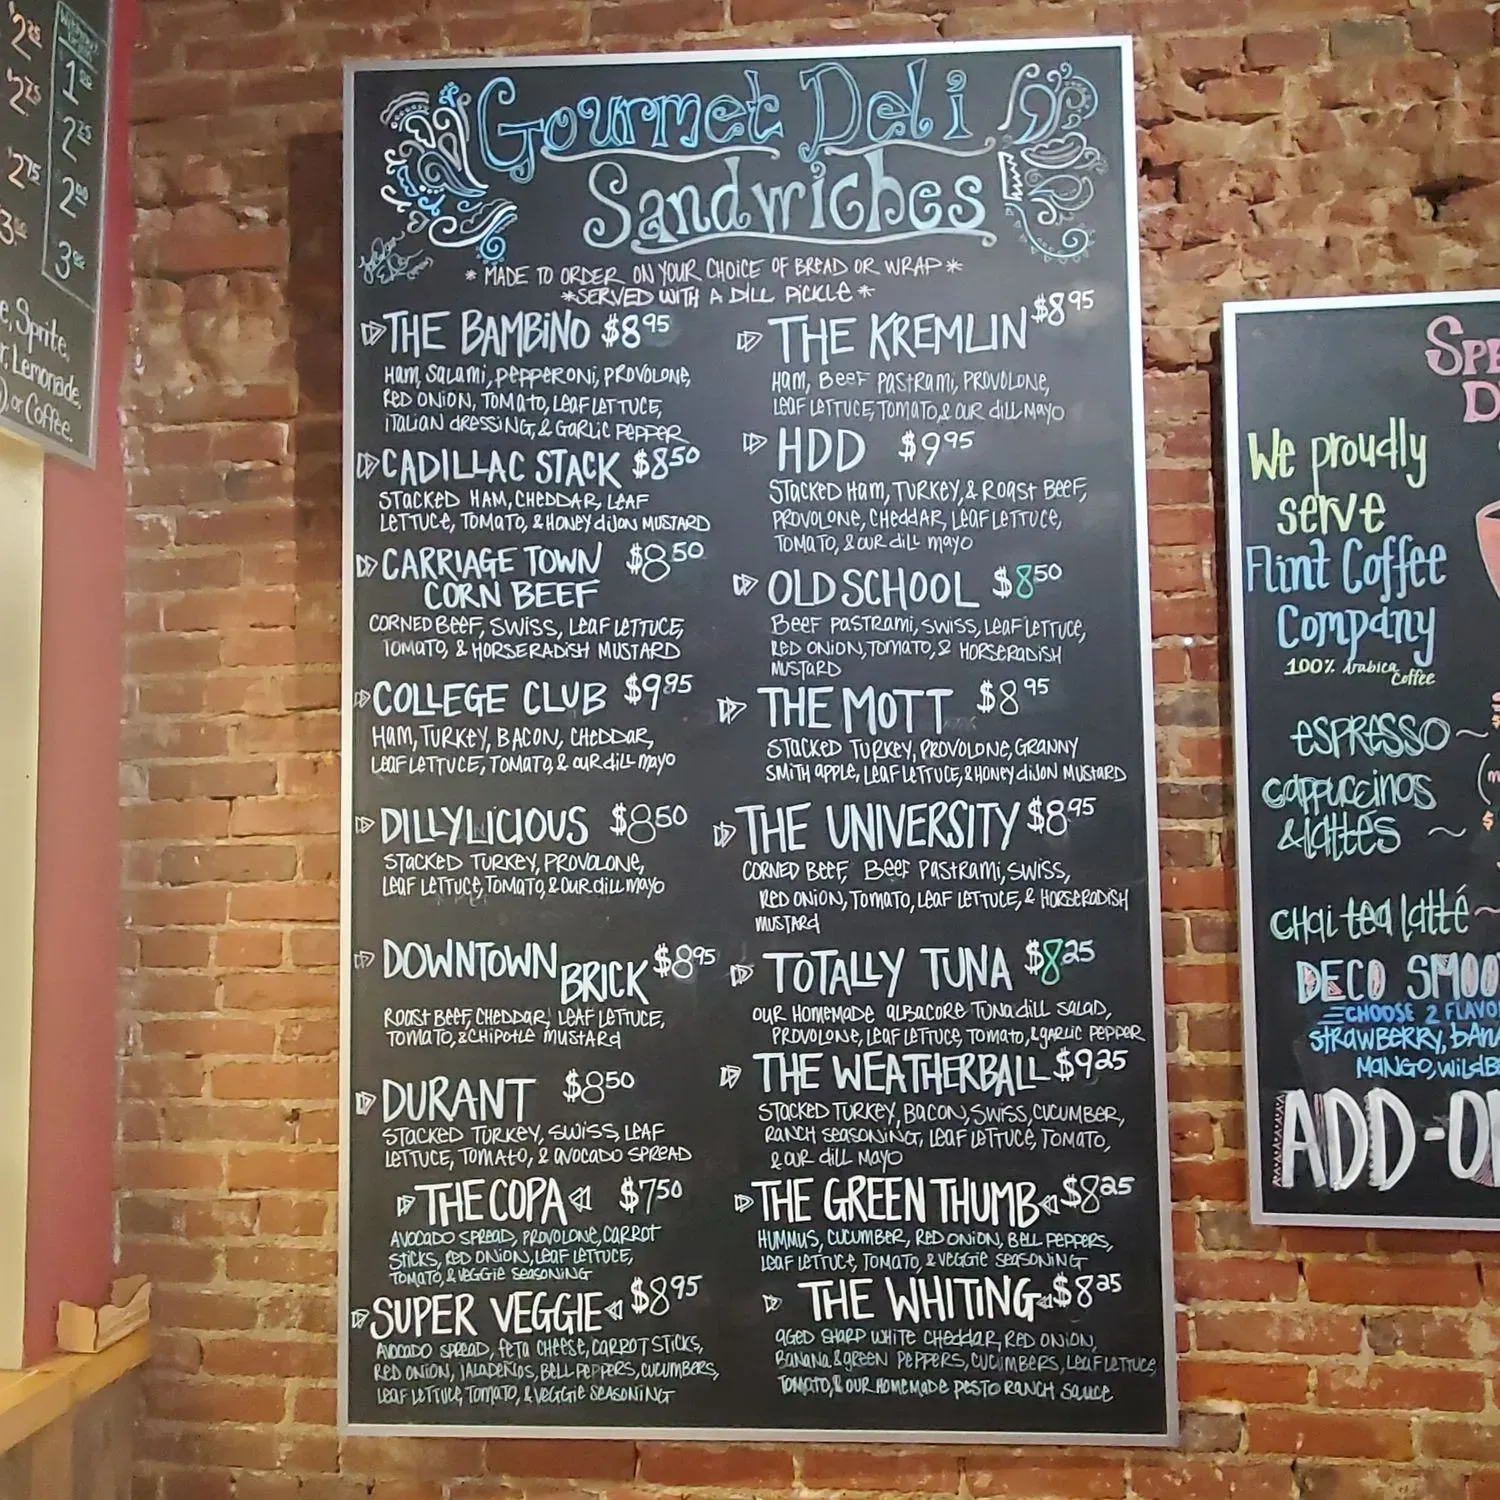 2.25
2.75
2.75
3.00
1.00
2.25
2.00
3.00
e, Sprite,
r, Lemonade,
), or Coffee.
Gourmet Deli
Sandwiches
* MADE TO ORDER ON YOUR CHOICE OF BREAD OR WRAP *
*SERVED WITH A DILL PICKLE *
THE BAMBINO $8.95
HAM, SALAMI, PEPPERONI, PROVOLONE,
RED ONION, TOMATO, LEAF LETTUCE,
ITALIAN DRESSING, & GARLIC PEPPER
CADILLAC STACK $8.50
STACKED HAM, CHEDDAR, LEAF
LETTUCE, TOMATO, & HONEY DIJON MUSTARD
CARRIAGE TOWN $8.50
CORN BEEF
CORNED BEEF, SWISS, LEAF LETTUCE,
TOMATO, & HORSERADISH MUSTARD
COLLEGE CLUB $9.95
HAM, TURKEY, BACON, CHEDDAR,
LEAF LETTUCE, TOMATO, & OUR DILL MAYO
DILLYLICIOUS $8.50
STACKED TURKEY, PROVOLONE,
LEAF LETTUCE, TOMATO, & OUR DILL MAYO
DOWNTOWN BRICK $8.95
ROAST BEEF, CHEDDAR, LEAF LETTUCE,
TOMATO, & CHIPOTLE MUSTARD
DURANT $8.50
STACKED TURKEY, SWISS, LEAF
LETTUCE, TOMATO, & AVOCADO SPREAD
THE COPA $7.50
AVOCADO SPREAD, PROVOLONE, CARROT
STICKS, RED ONION, LEAF LETTUCE,
TOMATO, & VEGGIE SEASONING
SUPER VEGGIE $8.95
AVOCADO SPREAD, FETA CHEESE, CARROT STICKS,
RED ONION, JALAPEÑOS, BELL PEPPERS, CUCUMBERS,
LEAF LETTUCE, TOMATO, & VEGGIE SEASONING
THE KREMLIN $8.95
HAM, BEEF PASTRAMI, PROVOLONE,
LEAF LETTUCE, TOMATO, & OUR DILL MAYO
HDD $9.95
STACKED HAM, TURKEY, & ROAST BEEF,
PROVOLONE, CHEDDAR, LEAF LETTUCE,
TOMATO, & OUR DILL MAYO
OLD SCHOOL $8.50
BEEF PASTRAMI, SWISS, LEAF LETTUCE,
RED ONION, TOMATO, & HORSERADISH
MUSTARD
THE MOTT $8.95
STACKED TURKEY, PROVOLONE, GRANNY
SMITH APPLE, LEAF LETTUCE, & HONEY DIJON MUSTARD
THE UNIVERSITY $8.95
CORNED BEEF, BEEF PASTRAMI, SWISS,
RED ONION, TOMATO, LEAF LETTUCE, & HORSERADISH
MUSTARD
TOTALLY TUNA $8.25
OUR HOMEMADE ALBACORE TUNA DILL SALAD,
PROVOLONE, LEAF LETTUCE, TOMATO, & GARLIC PEPPER
THE WEATHERBALL $9.25
STACKED TURKEY, BACON, SWISS, CUCUMBER,
RANCH SEASONING, LEAF LETTUCE, TOMATO,
& OUR DILL MAYO
THE GREEN THUMB $8.25
HUMMUS, CUCUMBER, RED ONION, BELL PEPPERS,
LEAF LETTUCE, TOMATO, & VEGGIE SEASONING
THE WHITING $8.25
AGED SHARP WHITE CHEDDAR, RED ONION,
BANANA & GREEN PEPPERS, CUCUMBERS, LEAF LETTUCE,
TOMATO, & OUR HOMEMADE PESTO RANCH SAUCE
SPE
D
We proudly
serve
Flint Coffee
Company
100% Arabica
Coffee
ESPRESSO ~
CAPPUCCINOS
& LATTES ~
CHAI TEA LATTÉ ~
DECO SMOO
CHOOSE 2 FLAVO
STRAWBERRY, BAN
MANGO, WILDB
ADD-O